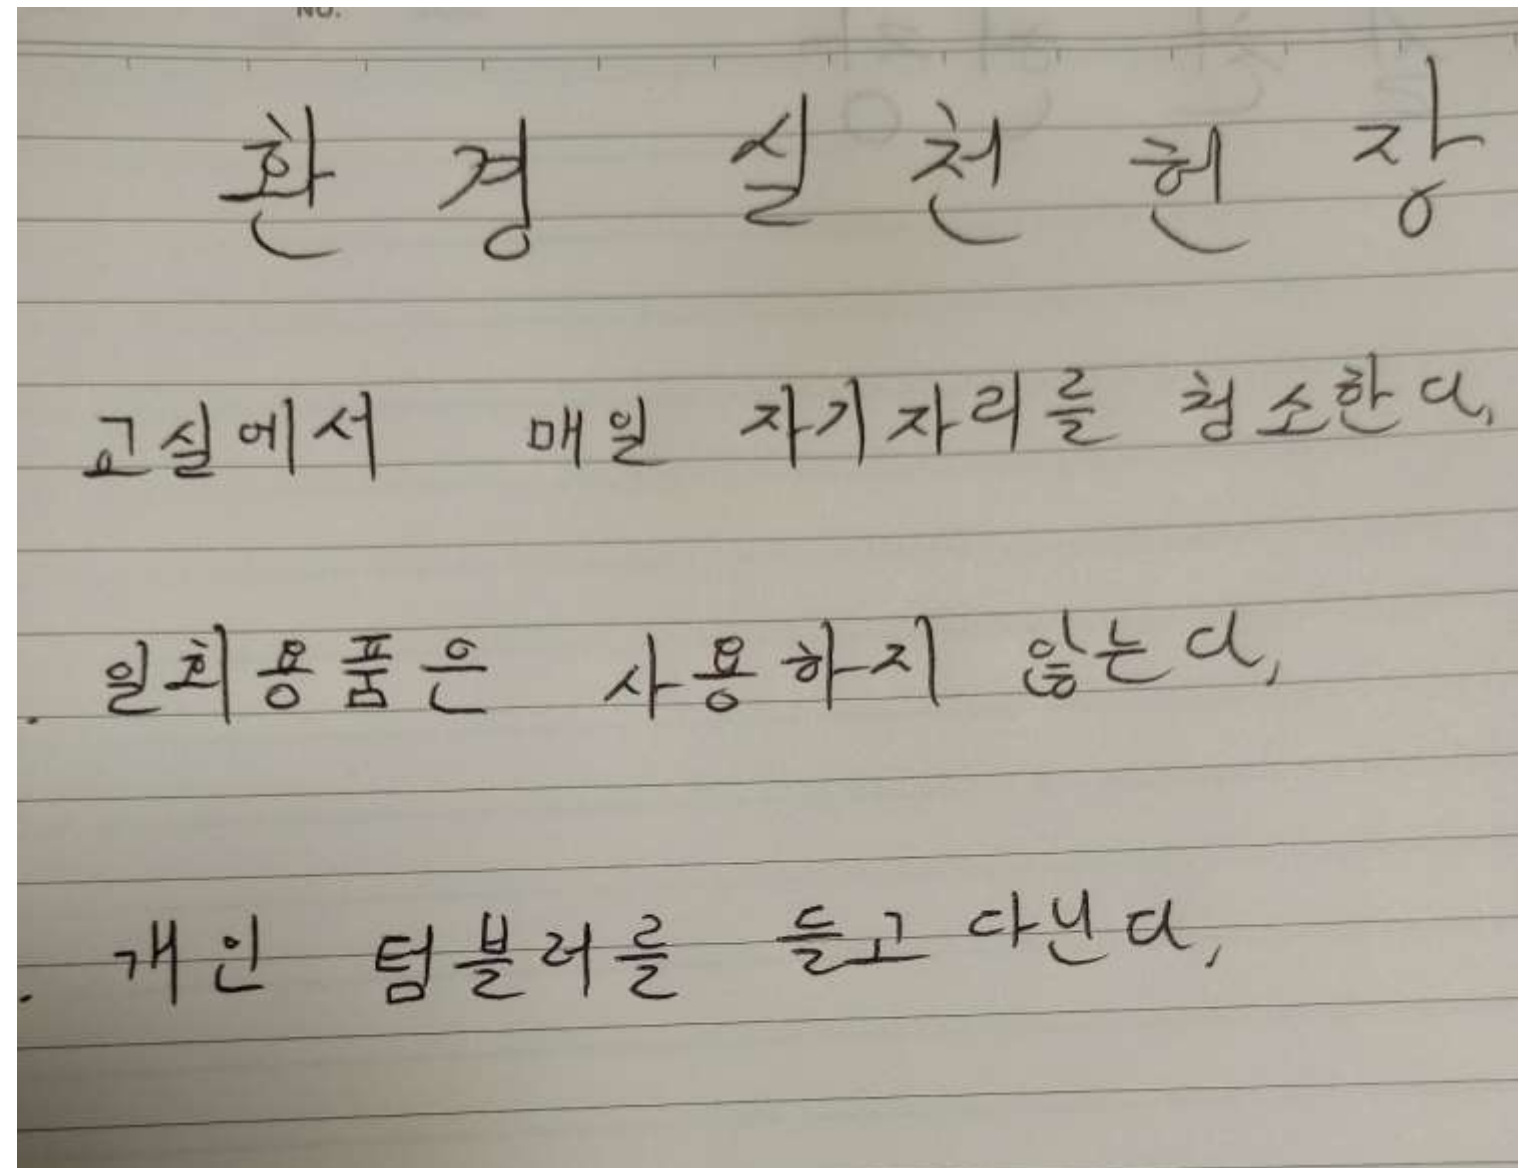 NO.
환경 실천헌장
교실에서 매일 자기자리를 청소한다,
. 일회용품은 사용하지 않는다,
. 개인 텀블러를 들고 다닌다,